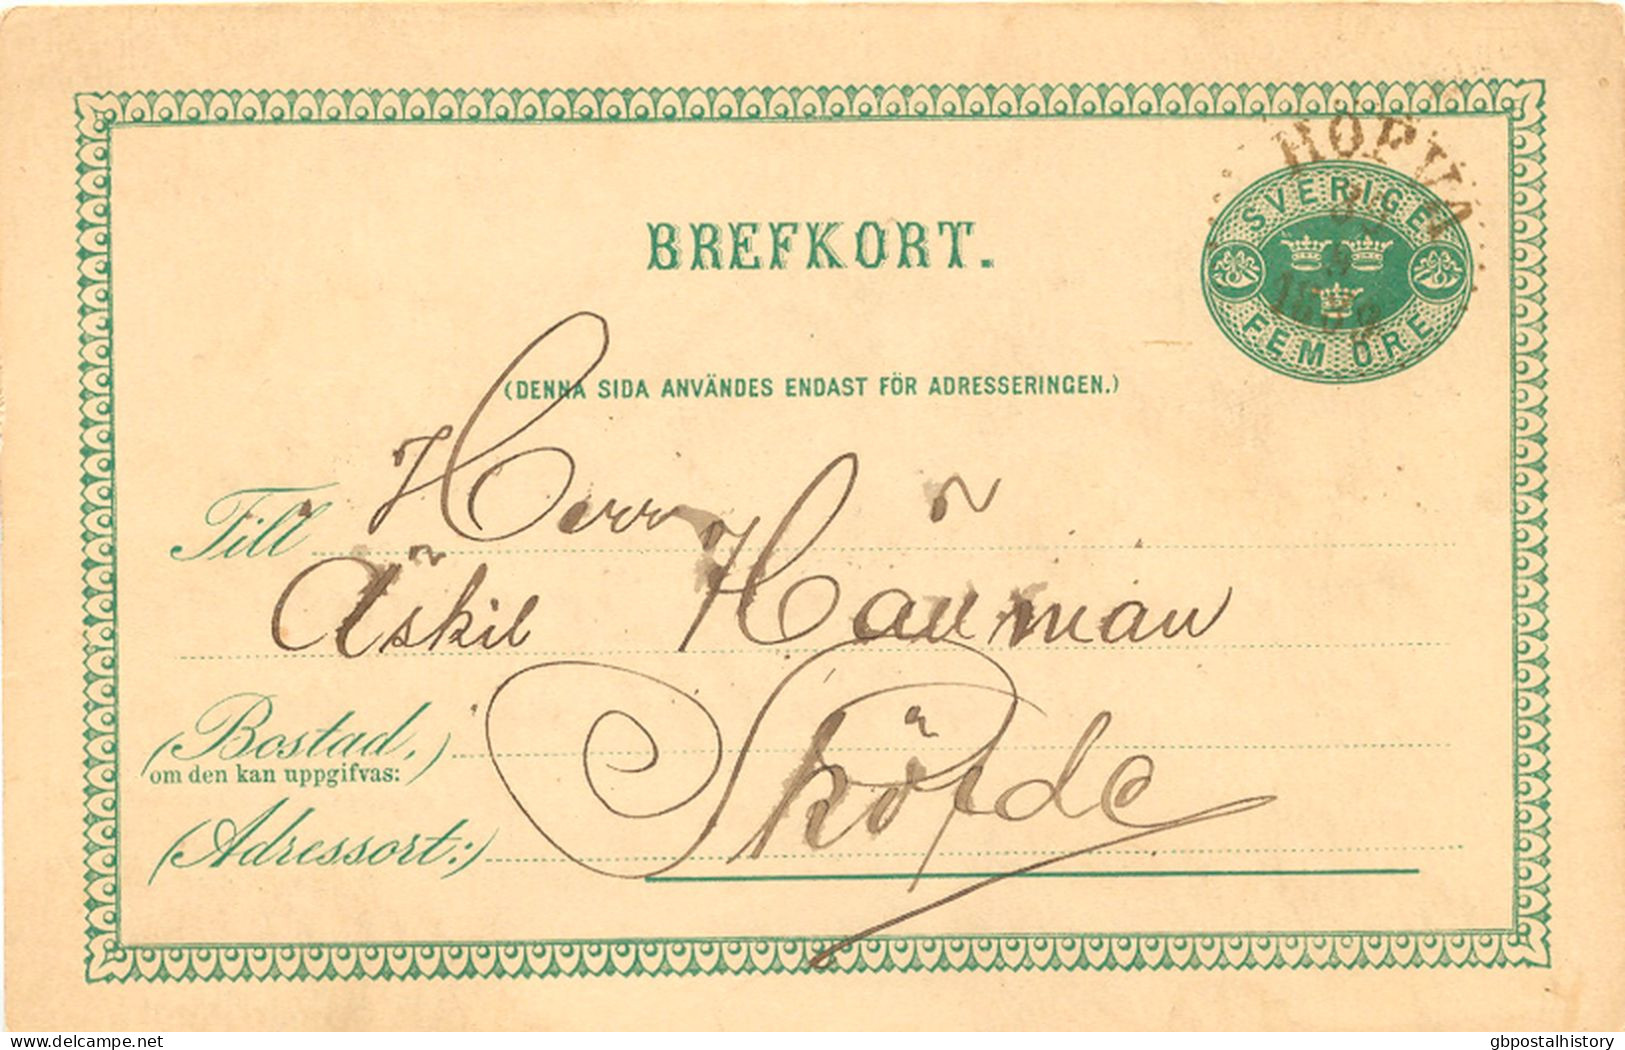 HOFVA
SVERIGE
FEM ÖRE
BREFKORT.
(DENNA SIDA ANVÄNDES ENDAST FÖR ADRESSERINGEN.)
Till Herr
Äskil Haŭman
(Bostad,
om den kan uppgifvas:)
(Adressort:) Sköfde
delcampe.net
gbpostalhistory